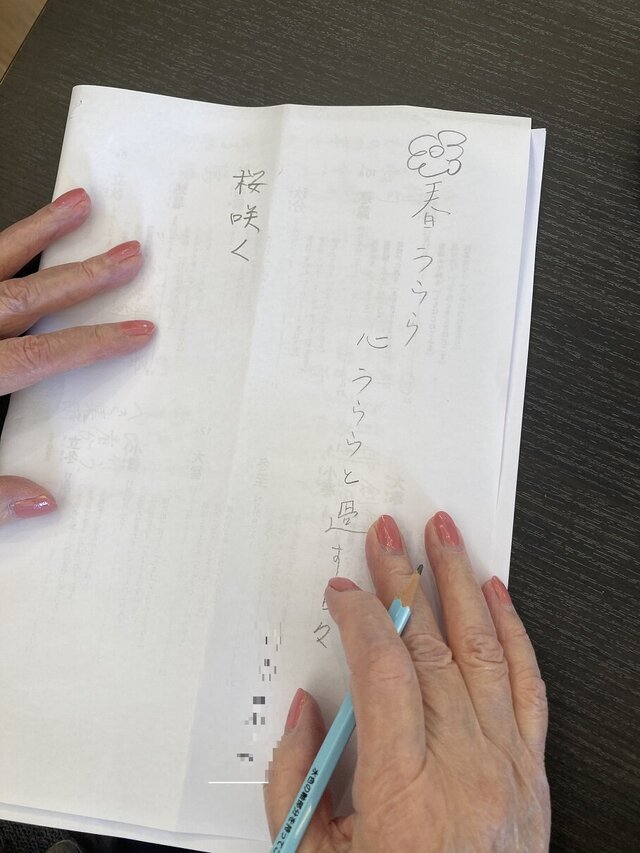 春うらら
心うららと過す日々
桜咲く